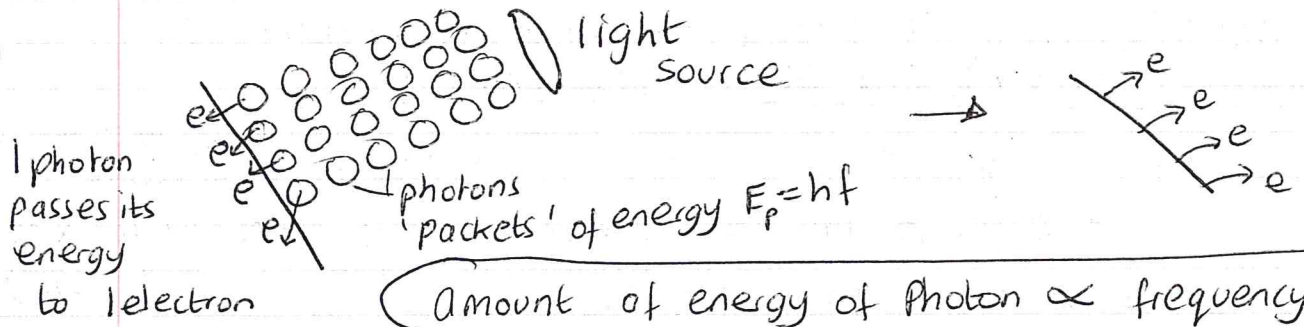 light
source
e
e
e
e
e
e
e
e
1 photon
passes its
energy
to 1 electron
photons
'packets' of energy Ep = hf
amount of energy of Photon ∝ frequency